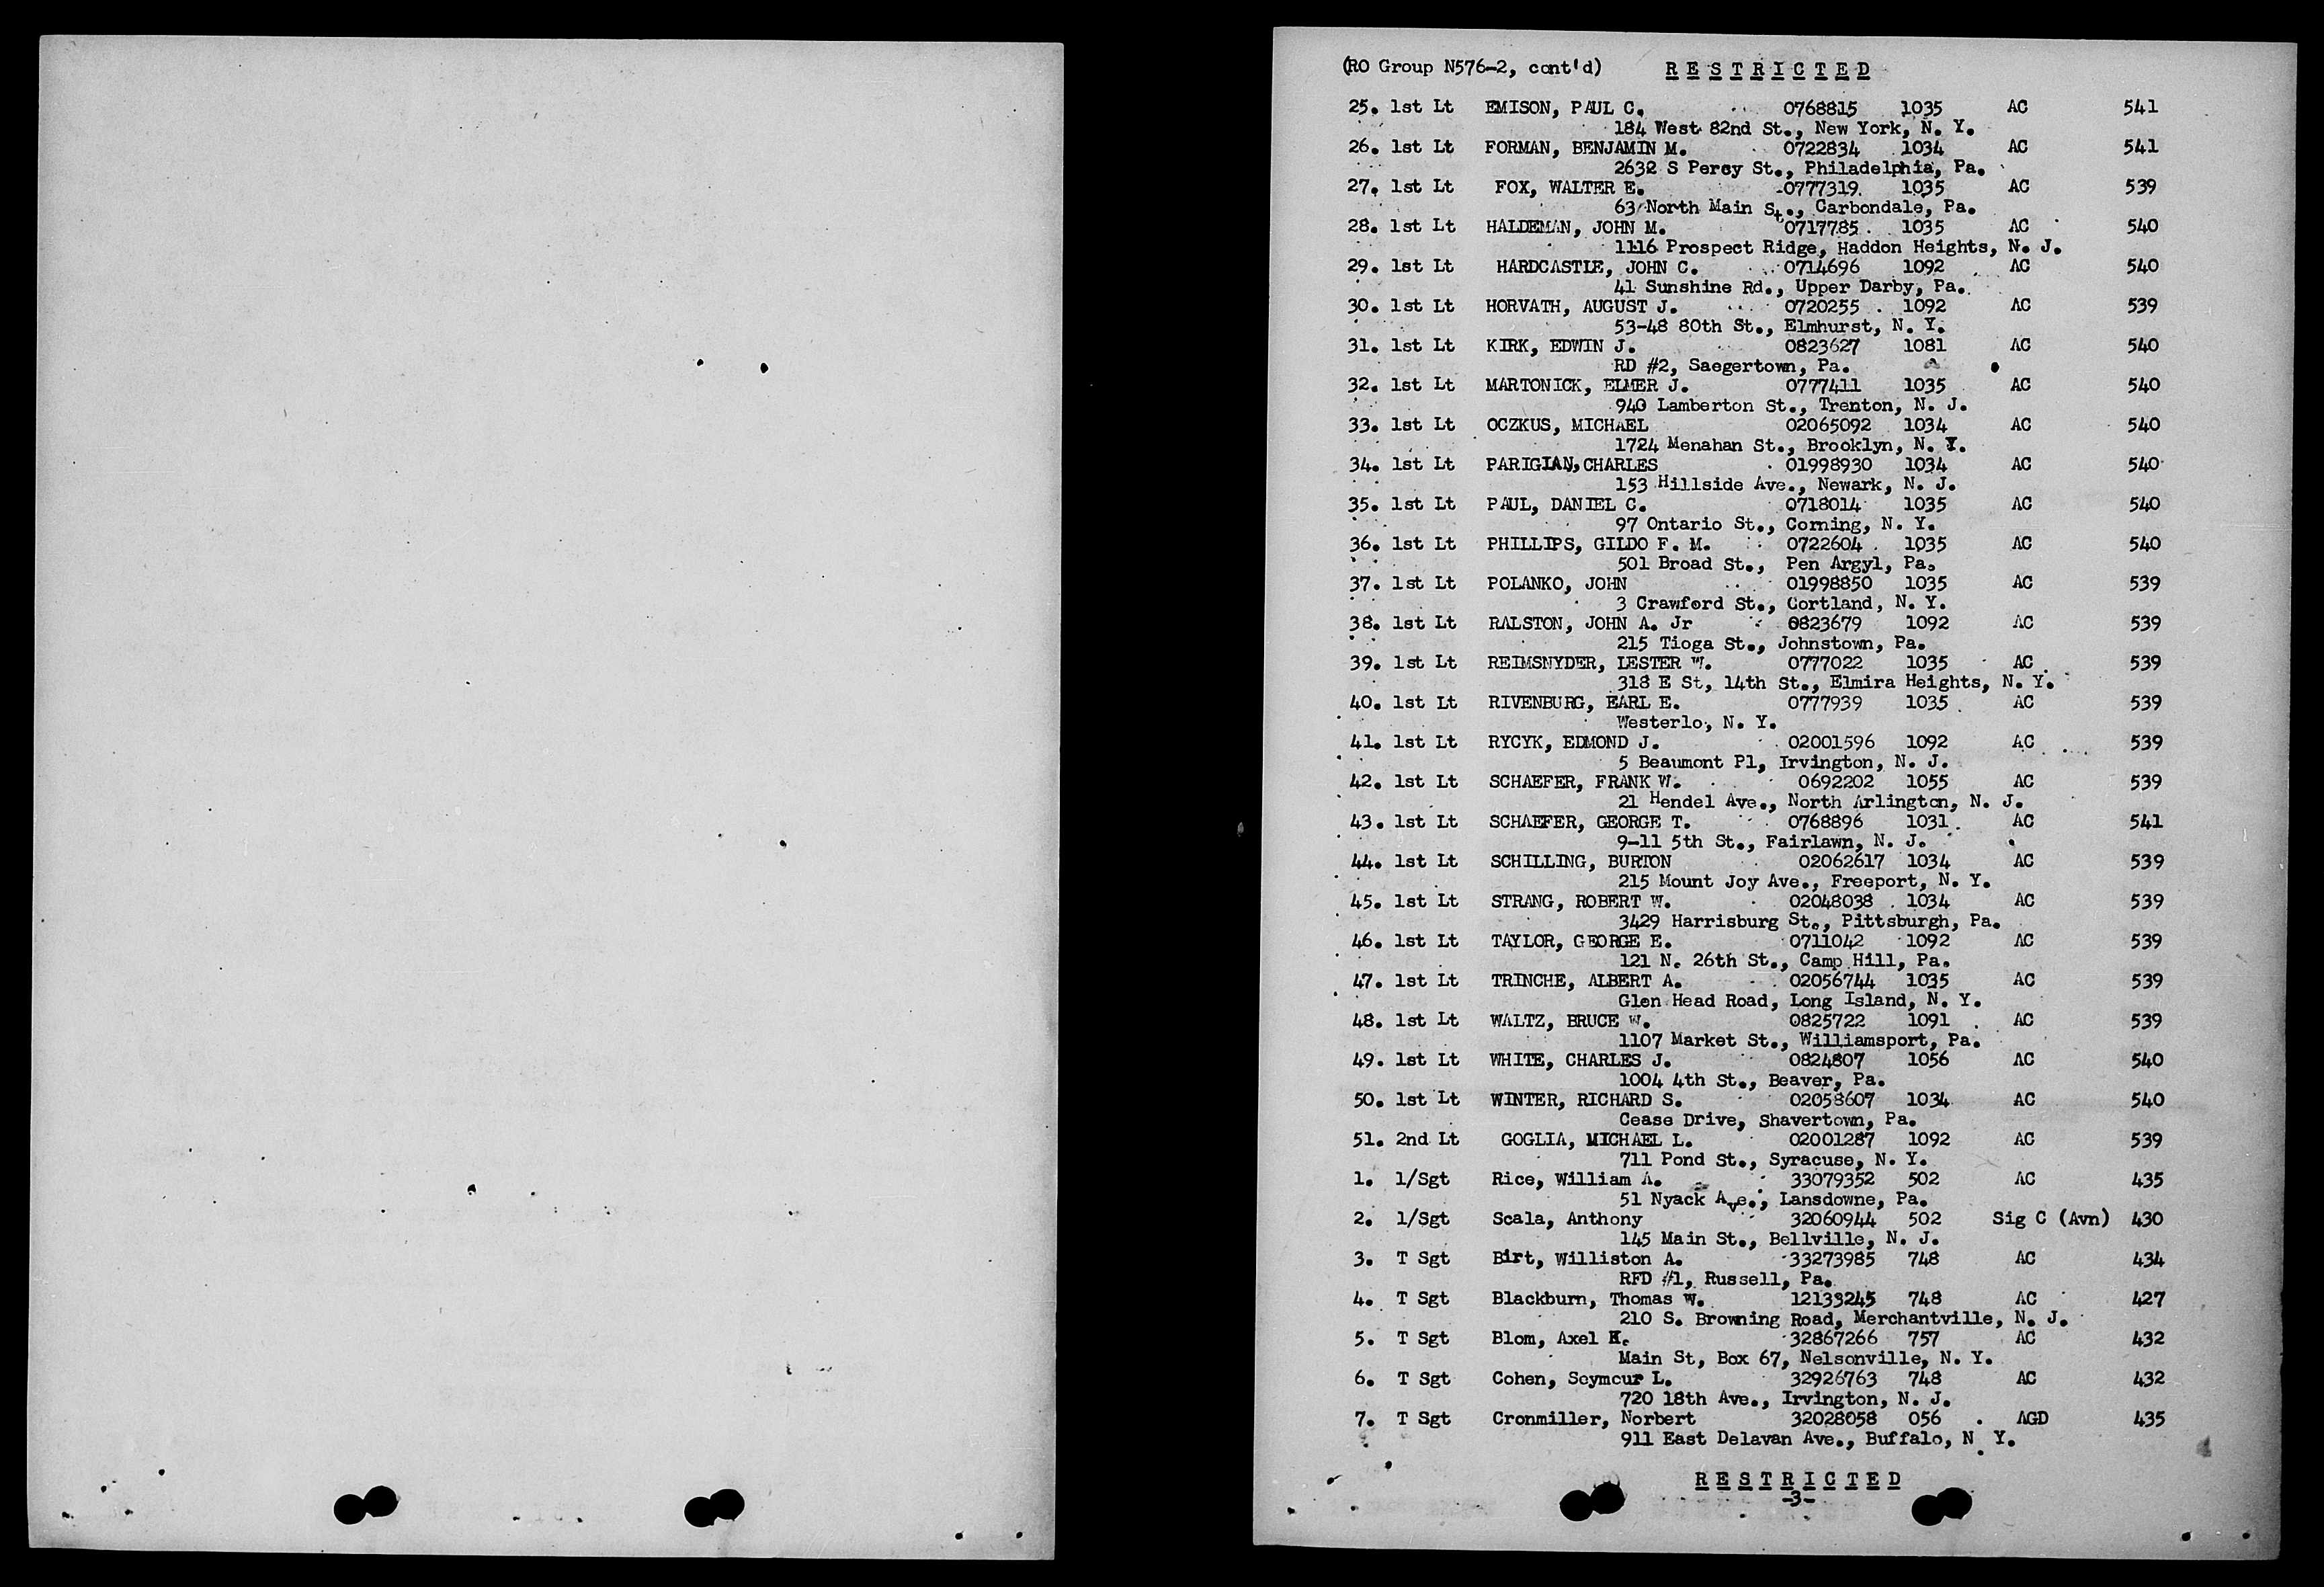 (RO Group N576-2, cont'd) RESTRICTED
25. 1st Lt EMISON, PAUL C. 0768815 1035 AC 541
184 West 82nd St., New York, N. Y.
26. 1st Lt FORMAN, BENJAMIN M. 0722834 1034 AC 541
2632 S Percy St., Philadelphia, Pa.
27. 1st Lt FOX, WALTER E. 0777319 1035 AC 539
63 North Main St., Carbondale, Pa.
28. 1st Lt HALDEMAN, JOHN M. 0717785 1035 AC 540
1116 Prospect Ridge, Haddon Heights, N. J.
29. 1st Lt HARDCASTLE, JOHN C. 0714696 1092 AC 540
41 Sunshine Rd., Upper Darby, Pa.
30. 1st Lt HORVATH, AUGUST J. 0720255 1092 AC 539
53-48 80th St., Elmhurst, N. Y.
31. 1st Lt KIRK, EDWIN J. 0823627 1081 AC 540
RD #2, Saegertown, Pa.
32. 1st Lt MARTONICK, ELMER J. 0777411 1035 AC 540
940 Lamberton St., Trenton, N. J.
33. 1st Lt OCZKUS, MICHAEL 02065092 1034 AC 540
1724 Menahan St., Brooklyn, N. Y.
34. 1st Lt PARIGIAN, CHARLES 01998930 1034 AC 540
153 Hillside Ave., Newark, N. J.
35. 1st Lt PAUL, DANIEL C. 0718014 1035 AC 540
97 Ontario St., Corning, N. Y.
36. 1st Lt PHILLIPS, GILDO F. M. 0722604 1035 AC 540
501 Broad St., Pen Argyl, Pa.
37. 1st Lt POLANKO, JOHN 01998850 1035 AC 539
3 Crawford St., Cortland, N. Y.
38. 1st Lt RALSTON, JOHN A. Jr 0823679 1092 AC 539
215 Tioga St., Johnstown, Pa.
39. 1st Lt REIMSNYDER, LESTER W. 0777022 1035 AC 539
318 E St, 14th St., Elmira Heights, N. Y.
40. 1st Lt RIVENBURG, EARL E. 0777939 1035 AC 539
Westerlo, N. Y.
41. 1st Lt RYCYK, EDMOND J. 02001596 1092 AC 539
5 Beaumont Pl, Irvington, N. J.
42. 1st Lt SCHAEFER, FRANK W. 0692202 1055 AC 539
21 Hendel Ave., North Arlington, N. J.
43. 1st Lt SCHAEFER, GEORGE T. 0768896 1031 AC 541
9-11 5th St., Fairlawn, N. J.
44. 1st Lt SCHILLING, BURTON 02062617 1034 AC 539
215 Mount Joy Ave., Freeport, N. Y.
45. 1st Lt STRANG, ROBERT W. 02048038 1034 AC 539
3429 Harrisburg St., Pittsburgh, Pa.
46. 1st Lt TAYLOR, GEORGE E. 0711042 1092 AC 539
121 N. 26th St., Camp Hill, Pa.
47. 1st Lt TRINCHE, ALBERT A. 02056744 1035 AC 539
Glen Head Road, Long Island, N. Y.
48. 1st Lt WALTZ, BRUCE W. 0825722 1091 AC 539
1107 Market St., Williamsport, Pa.
49. 1st Lt WHITE, CHARLES J. 0824807 1056 AC 540
1004 4th St., Beaver, Pa.
50. 1st Lt WINTER, RICHARD S. 02058607 1034 AC 540
Cease Drive, Shavertown, Pa.
51. 2nd Lt GOGLIA, MICHAEL L. 02001287 1092 AC 539
711 Pond St., Syracuse, N. Y.
1. 1/Sgt Rice, William A. 33079352 502 AC 435
51 Nyack Ave., Lansdowne, Pa.
2. 1/Sgt Scala, Anthony 32060944 502 Sig C (Avn) 430
145 Main St., Bellville, N. J.
3. T Sgt Birt, Williston A. 33273985 748 AC 434
RFD #1, Russell, Pa.
4. T Sgt Blackburn, Thomas W. 12133245 748 AC 427
210 S. Browning Road, Merchantville, N. J.
5. T Sgt Blom, Axel H. 32867266 757 AC 432
Main St, Box 67, Nelsonville, N. Y.
6. T Sgt Cohen, Seymour L. 32926763 748 AC 432
720 18th Ave., Irvington, N. J.
7. T Sgt Cronmiller, Norbert 32028058 056 AGD 435
911 East Delavan Ave., Buffalo, N. Y.
RESTRICTED
-3-